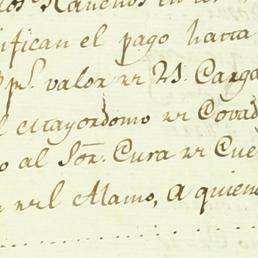 los Ranchos en
ifican el pago hasta
Pps. valor de 21. Carga
l Mayordomo de Covad
o al Sor. Cura de Cue
del Alamo, a quien